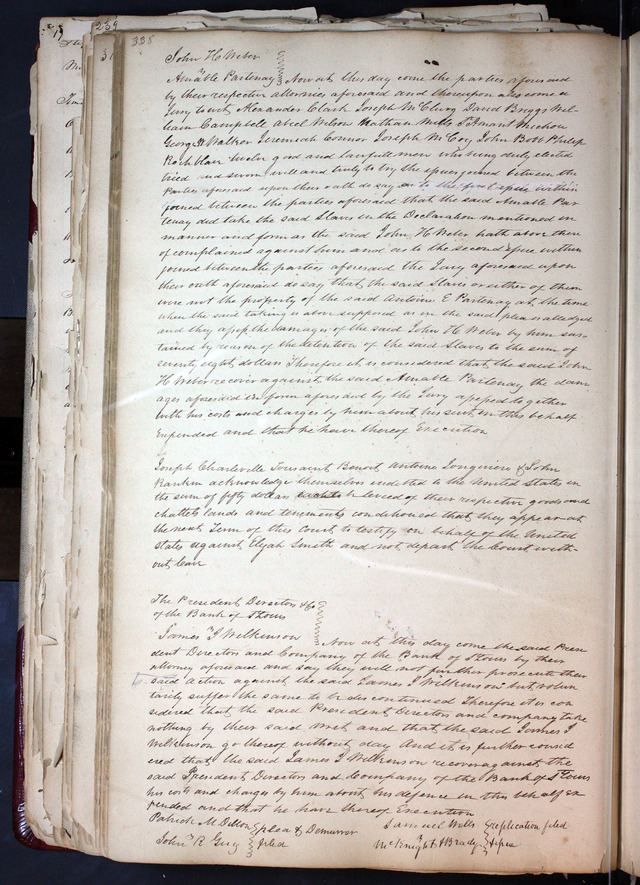 239
335
John H Weber
vs
Amable Partenay Now at this day come the parties aforesaid
by their respective attornies aforesaid and thereupon also come a
Jury to wit, Alexander Clark Joseph McClurg David Briggs Wil-
liam Campbell Abeel Wilson Nathan Mills St Amant Michou
George H Walker Jeremiah Connor Joseph McCoy John Bobb Philip
Rochblave twelve good and lawfull men who being duly elected
tried and sworn well and truly to try the issues joined between the
Parties aforesaid upon their oath do say as to the first issue within
joined between the parties aforesaid that the said Amable Par-
tenay did take the said Slaves in the Declaration mentioned in
manner and form as the said John H Weber hath above there
of complained against him and as to the second issue within
joined between the parties aforesaid the Jury aforesaid upon
their oath aforesaid do say that the said Slaves or either of them
were not the property of the said Antoine E Partenay at the time
when the said taking is above supposed as in the said plea is alledged
and they assess the damages of the said John H Weber by him sus-
tained by reason of the detention of the said Slaves to the sum of
seventy eight dollars Therefore it is considered that the said John
H Weber recover against the said Amable Partenay the dam
ages aforesaid in form aforesaid by the Jury assessed together
with his costs and charges by him about his suit in this behalf
Expended and that he have thereof Execution
Joseph Charleville Tousaint Benoit Antoine Jonquiere & John
Rankin acknowledge themselves indebted to the United States in
the sum of fifty dollars each to be levied of their respective goods and
chattels lands and tenements conditioned that they appear at
the next Term of this Court to testify on behalf of the United
States against Elijah Smith and not depart the Court with-
out leave
The President Directors &Co
of the Bank of St Louis
vs
James J Wilkinson Now at this day come the said Presi-
dent Directors and Company of the Bank of St Louis by their
attorney aforesaid and say they will not further prosecute their
said action against the said James J Wilkinson but volun
tarily suffer the same to be discontinued Therefore it is con
sidered that the said President Directors and company take
nothing by their said writ and that the said James J
Wilkinson go thereof without day And it is further consid
ered that the said James J Wilkinson recover against the
said President Directors and Company of the Bank of St Louis
his costs and charges by him about his defence in this behalf ex
pended and that he have thereof Execution
Patrick M Dillon
vs plea & Demurrer
John R Guy filed
Samuel Wells replication filed
vs
McKnight & Brady & issue